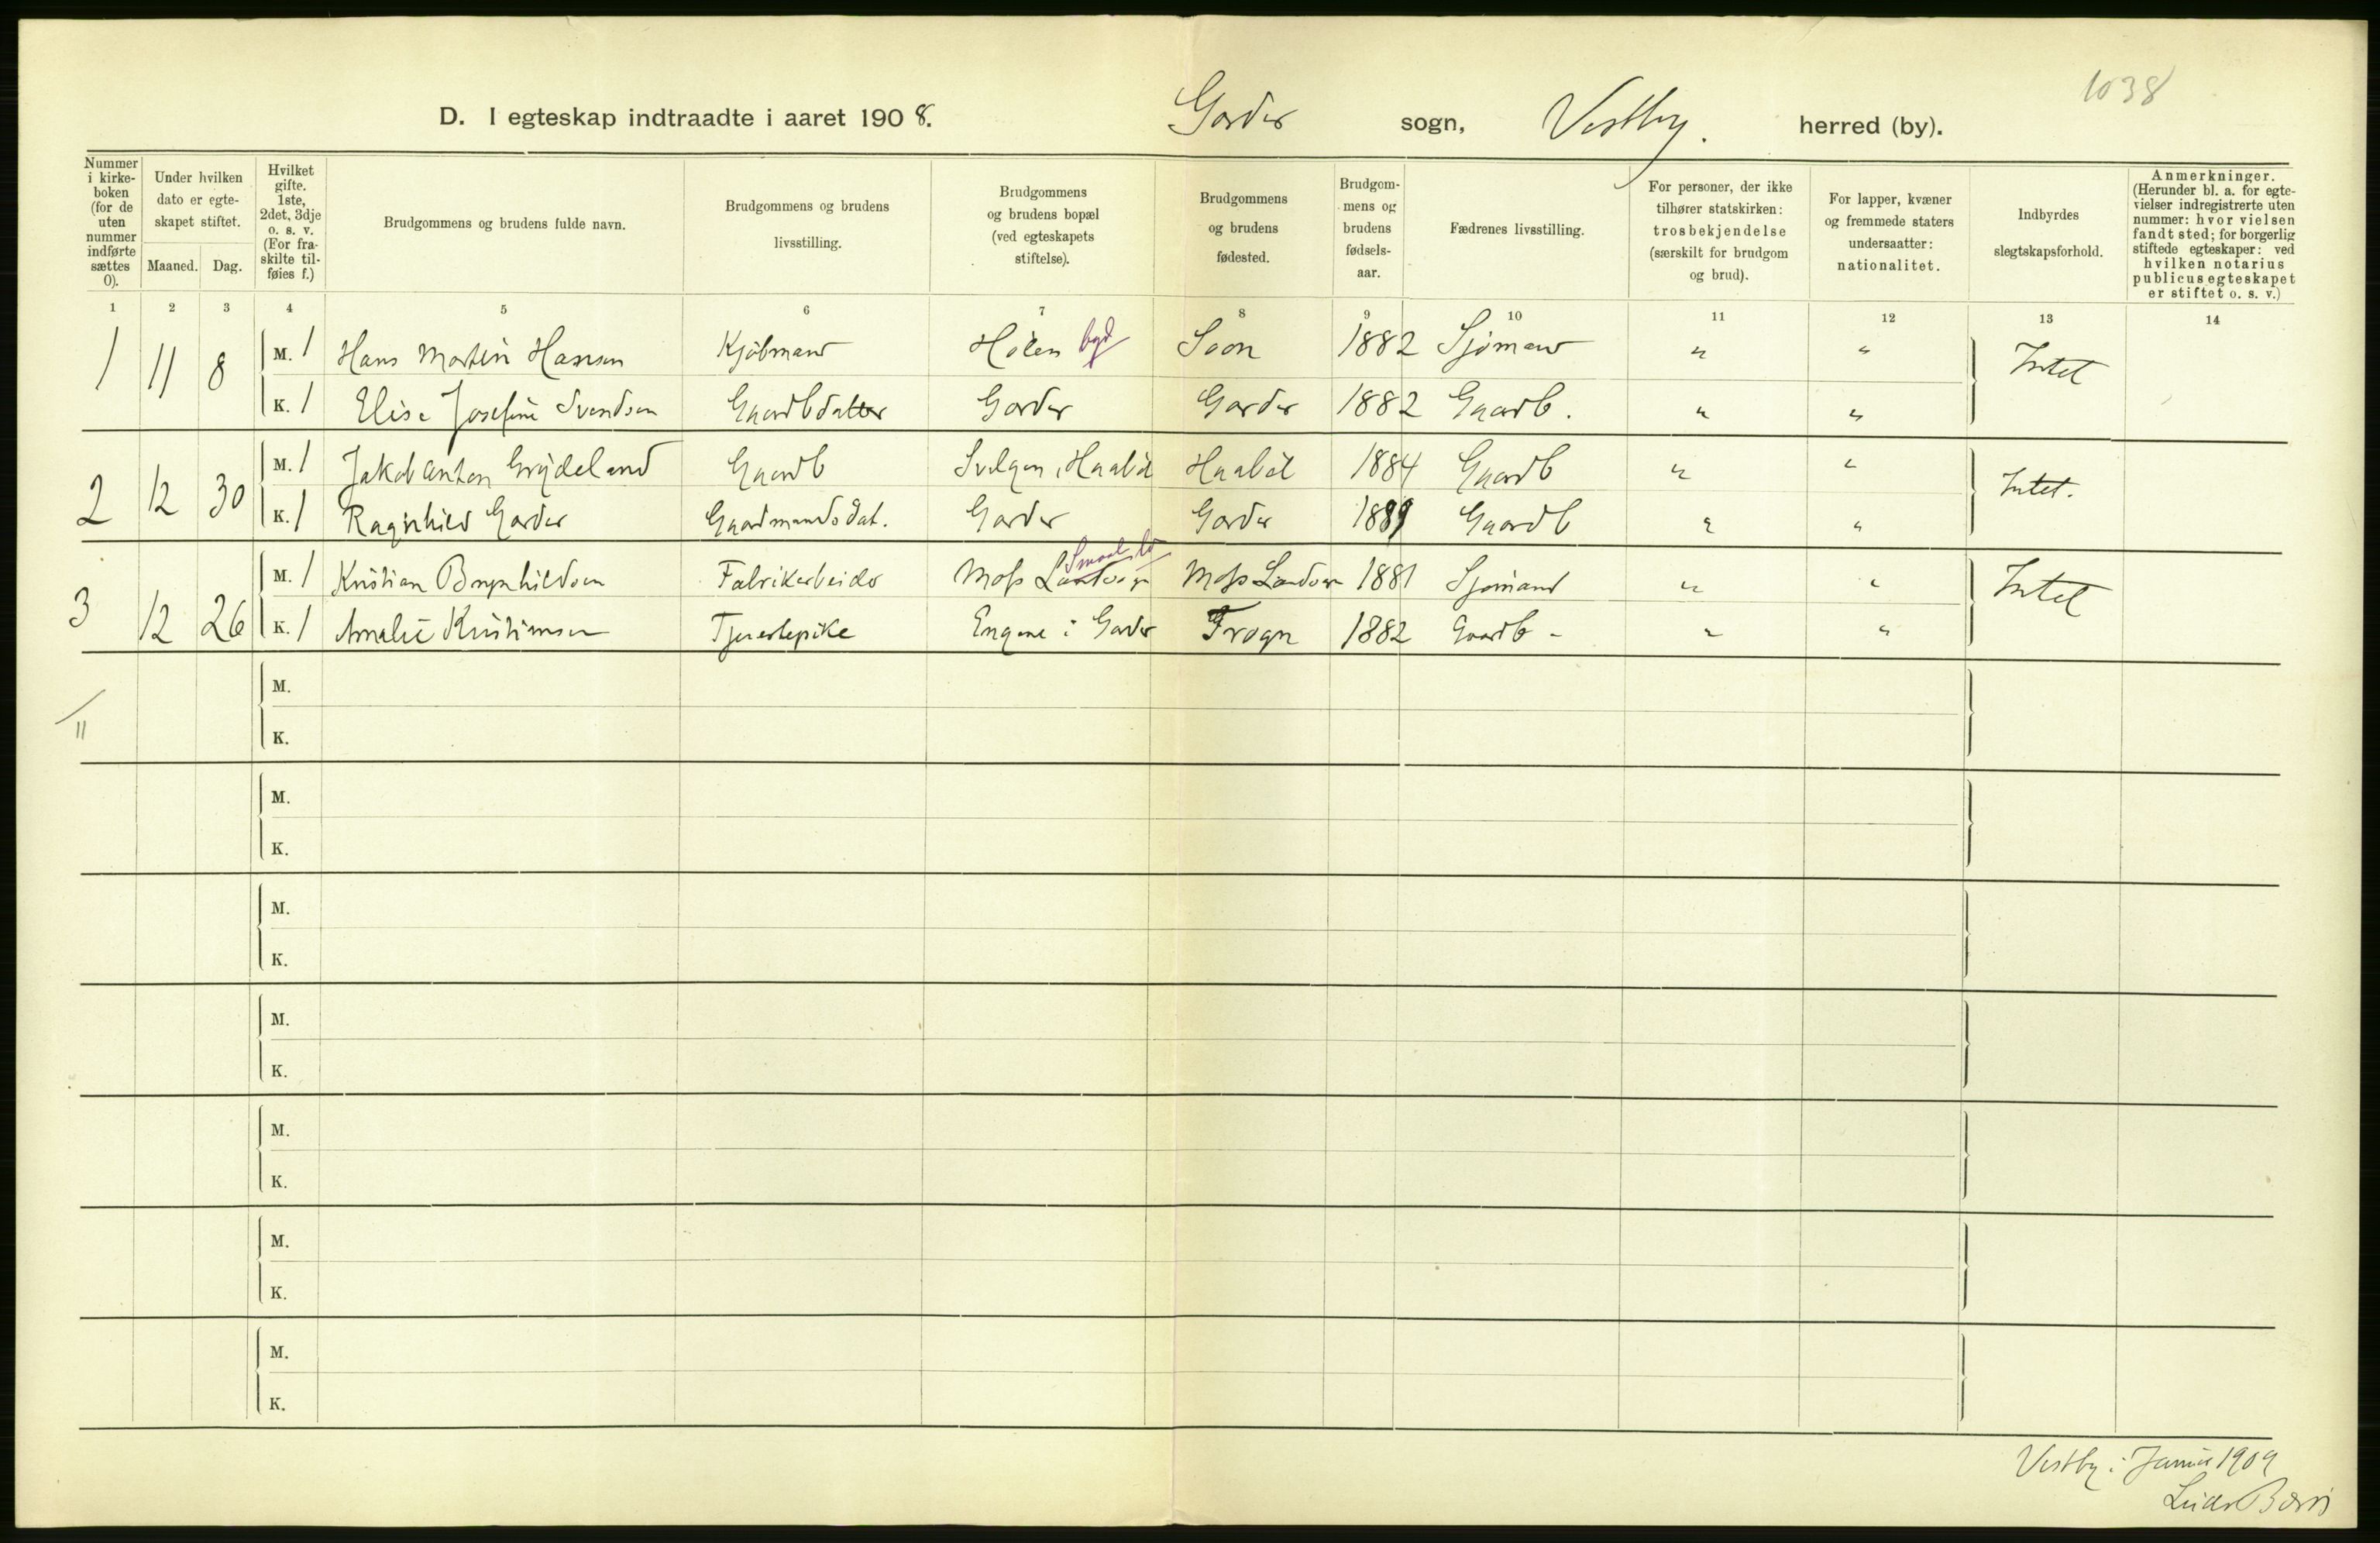 1038
D. I egteskap indtraadte i aaret 1908. Garder sogn, Vestby. herred (by).
Nummer i kirke-boken (for de uten nummer indførte sættes 0).
Under hvilken dato er egte-skapet stiftet.
Maaned. Dag.
Hvilket gifte. 1ste, 2det, 3dje o. s. v. (For fra-skilte til-føies f.)
Brudgommens og brudens fulde navn.
Brudgommens og brudens livsstilling.
Brudgommens og brudens bopæl (ved egteskapets stiftelse).
Brudgommens og brudens fødested.
Brudgom-mens og brudens fødsels-aar.
Fædrenes livsstilling.
For personer, der ikke tilhører statskirken: trosbekjendelse (særskilt for brudgom og brud).
For lapper, kvæner og fremmede staters undersaatter: nationalitet.
Indbyrdes slegtskapsforhold.
Anmerkninger. (Herunder bl. a. for egte-vielser indregistrerte uten nummer: hvor vielsen fandt sted; for borgerlig stiftede egteskaper: ved hvilken notarius publicus egteskapet er stiftet o. s. v.)
1 2 3 4 5 6 7 8 9 10 11 12 13 14
1 11 8 M. 1 Hans Martin Hansen Kjøbmand Hølen byd Soon 1882 Sjømand " " Intet
K. 1 Elise Josefine Svendsen Gaardbdatter Garder Garder 1882 Gaardb. " "
2 12 30 M. 1 Jakob Anton Grydeland Gaardb Haabøl Haabøl 1884 Gaardb " " Intet.
K. 1 Ragnhild Garder Gaardmandsdat. Garder Garder 1889 Gaardb " "
3 12 26 M. 1 Kristian Brynhildsen Fabrikarbeider Moss Landsogn Moss Landsogn 1881 Sjømand " " Intet
K. 1 Amalie Kristiansen Tjenestepike Engene i Garder Frogn 1882 Gaardb - " "
M.
11
K.
M.
K.
M.
K.
M.
K.
M.
K.
M.
K.
M.
K.
Vestby i Januar 1909